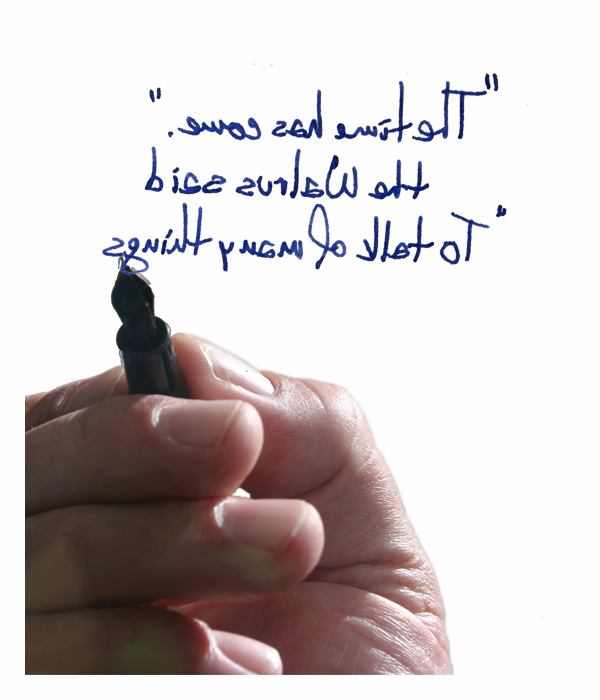 "The time has come."
the Walrus said
"To talk of many things